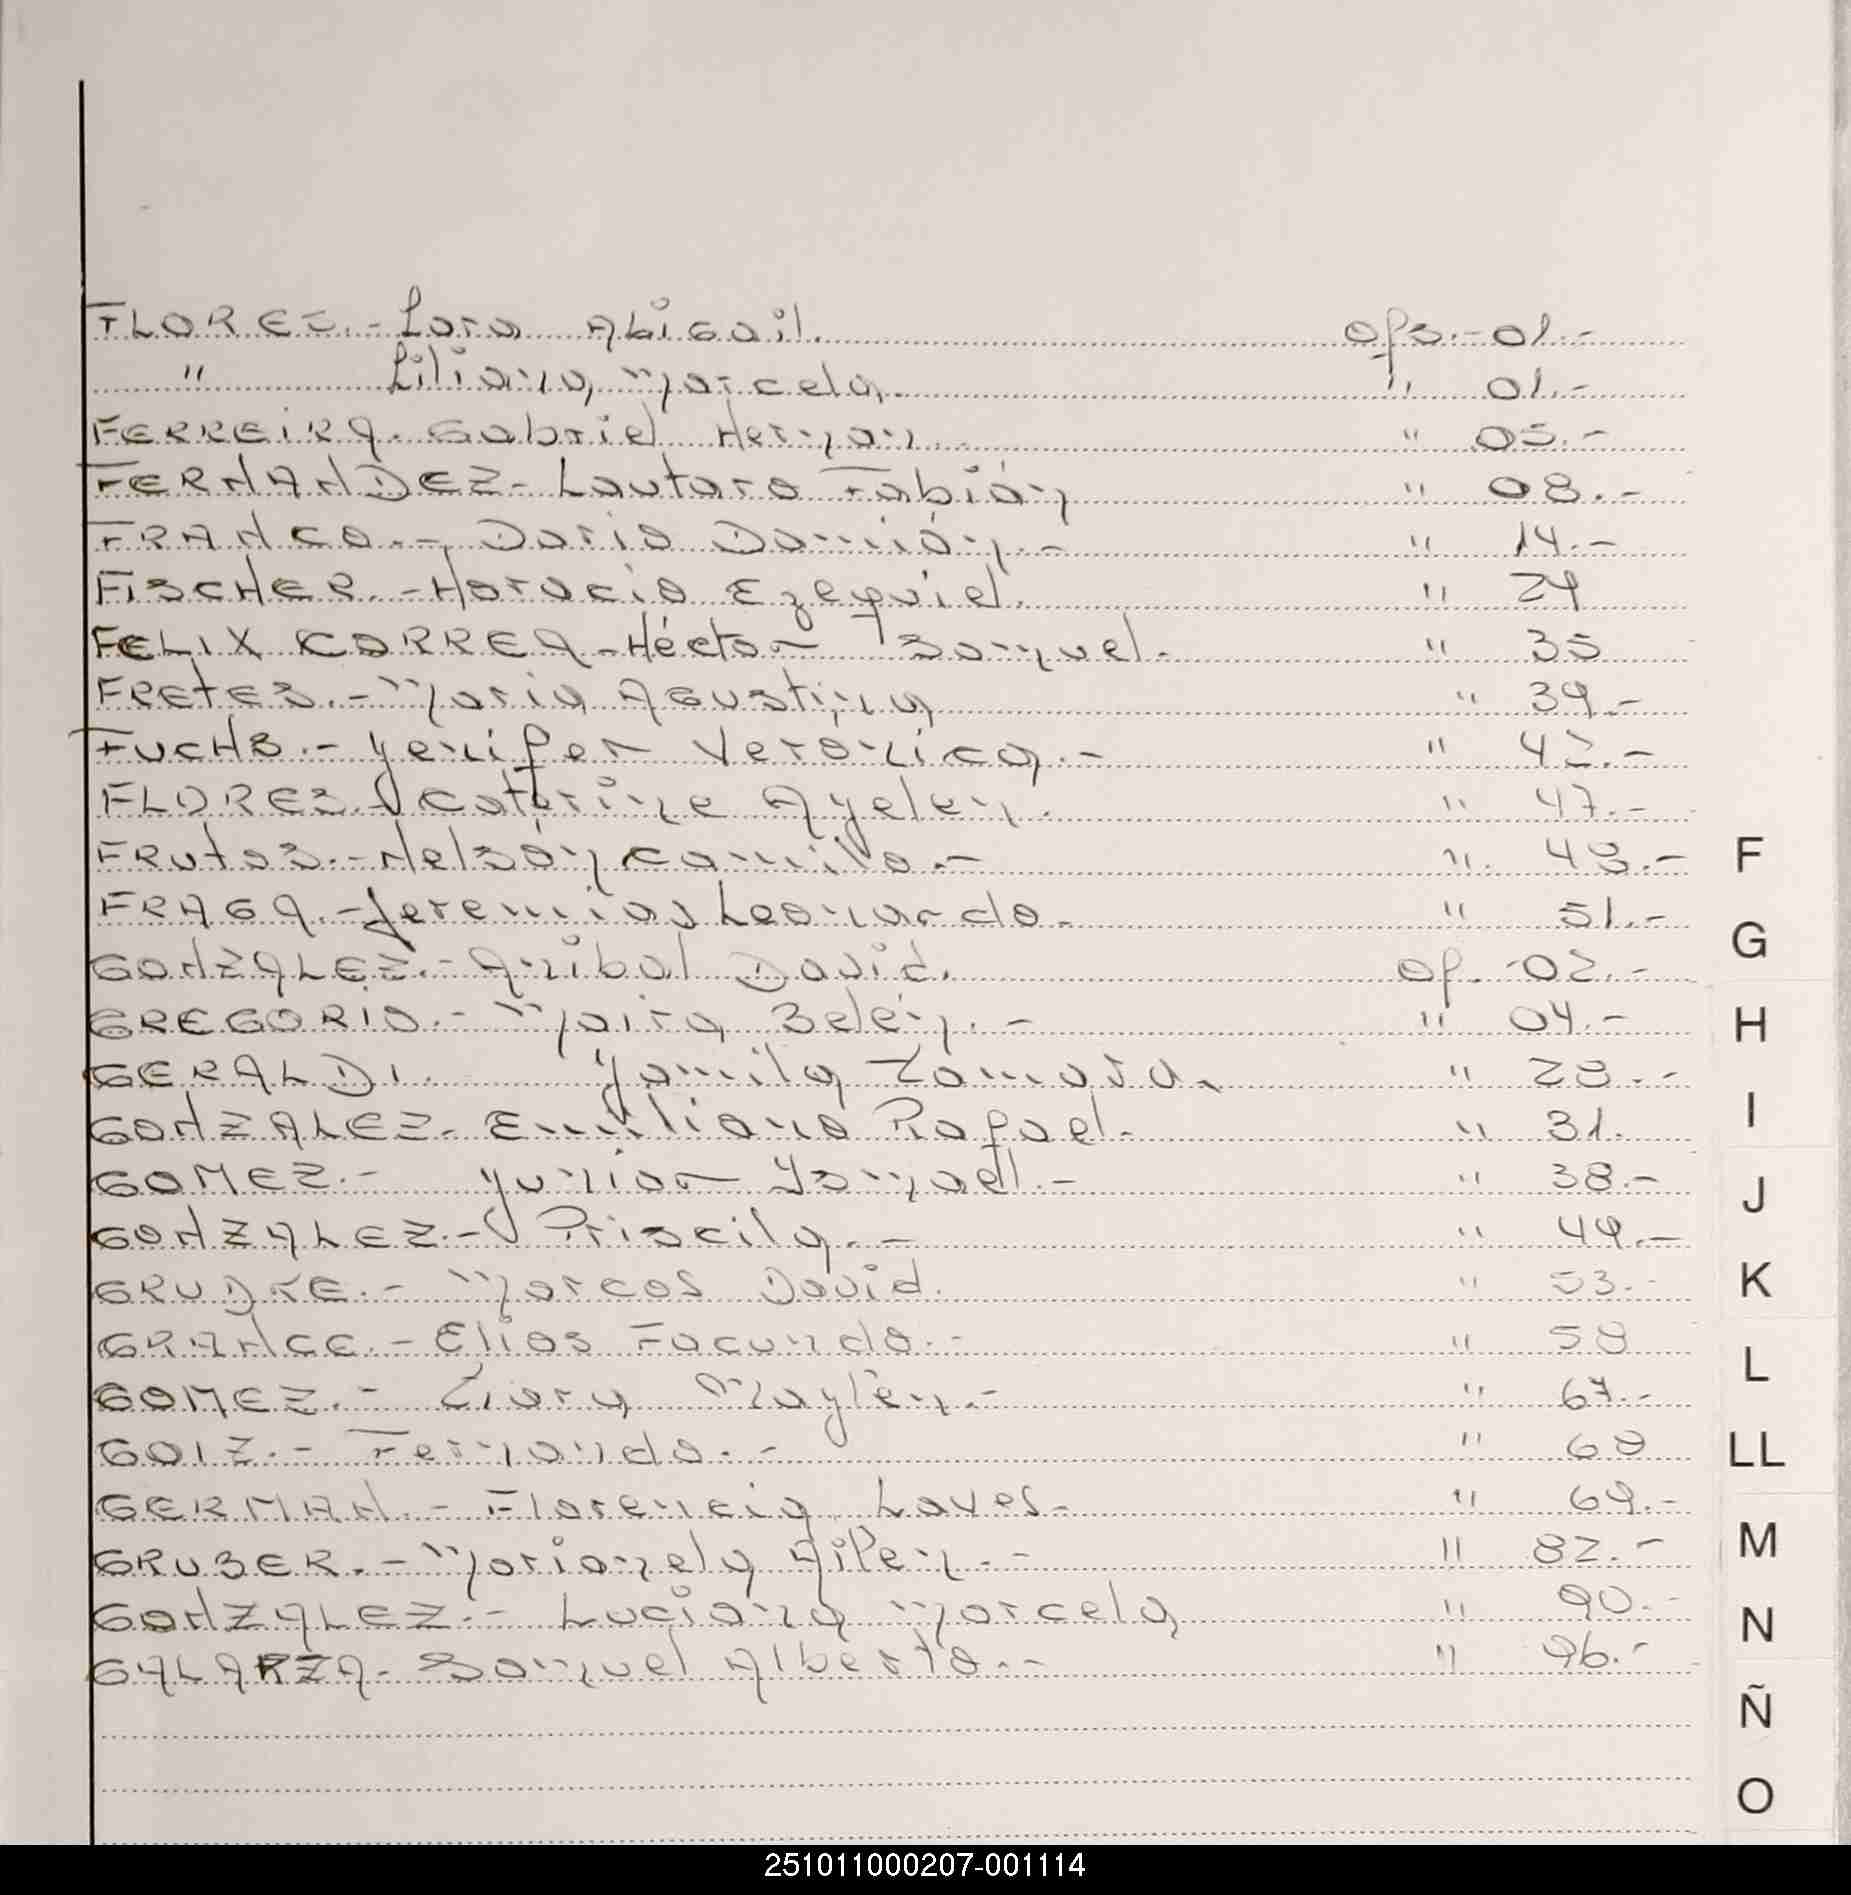 FLORES.- Lara Abigail. Ofs.- 01.-
" Liliana Marcela. " 01.-
FERREIRA. Gabriel Hernan. " 05.-
FERNANDEZ- Lautaro Fabián " 08.-
FRANCO.- Dario Damián.- " 14.-
FISCHER.- Horacio Ezequiel. " 24
FELIX CORREA- Héctor Samuel. " 35
FRETES.- Maria Agustina " 39.-
FUCHS.- Yenifer Veronica.- " 42.-
FLORES. Caterine Ayelen. " 47.-
FRUTOS.- Nelsón Camilo.- " 48.-
FRAGA.- Jeremias Leonardo. " 51.-
GONZALEZ.- Anibal David. Of. 02.-
GREGORIO.- Maira Belén.- " 04.-
GERALDI. Yamila Tamara. " 28.-
GONZALEZ. Emiliano Rafael. " 31.
GOMEZ.- Yunior Ysmael.- " 38.-
GONZALEZ.- Priscila.- " 49.-
GRUDKE.- Marcos David. " 53.-
GRANCE.- Elias Facundo.- " 58
GOMEZ.- Ziara Maylén.- " 67.-
GOIZ.- Fernando.- " 68
GERMAN.- Florencia Laves- " 69.-
GRUBER.- Marianela Ailen.- " 82.-
GONZALEZ.- Luciana Marcela " 90.-
GALARZA- Samuel Alberto.- " 96.-
F
G
H
I
J
K
L
LL
M
N
Ñ
O
251011000207-001114